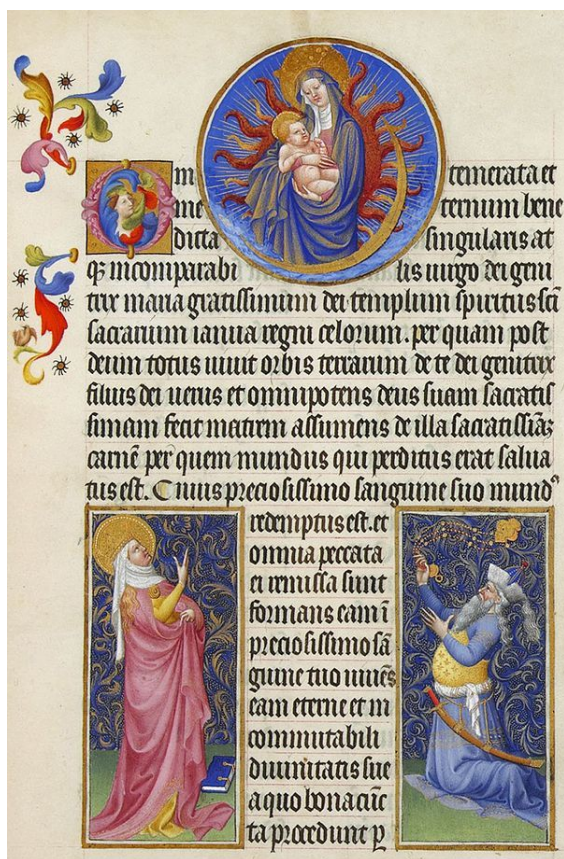 O in temerata et
in e ternum bene
dicta singularis at
qꝫ incomparabi lis uirgo dei geni
trix maria gratissimum dei templum spiritus sci
sacrarium ianua regni celorum. per quam post
deum totus uiuit orbis terrarum de te dei genitrix
filius dei uerus et omnipotens deus suam sacratis
simam fecit matrem assumens de illa sacratissiaꝫ
carnē per quem mundus qui perditus erat salua
tus est. Cuius preciosissimo sanguine suo mundꝰ
redemptus est. et
omnia peccata
ei remissa sunt
formans eam ī
preciosissimo sā
guine tuo uiuēs
eam eterne et in
commutabili
diuinitatis sue
a quo bona cūc
ta procedunt p